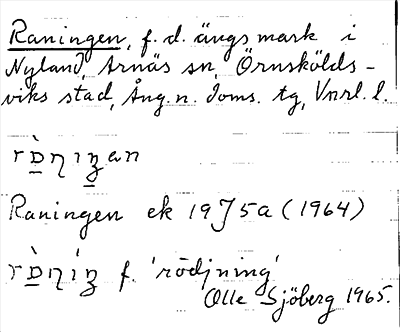 Raningen, f. d. ängsmark i
Nyland, Arnäs sn, Örnskölds-
viks stad, Ång. n. doms. tg, Vnrl. l.
rɒ̀ṇıŋan
Raningen ek 19J5a (1964)
rɒ̀ṇíŋ f. 'rödjning'
Olle Sjöberg 1965.